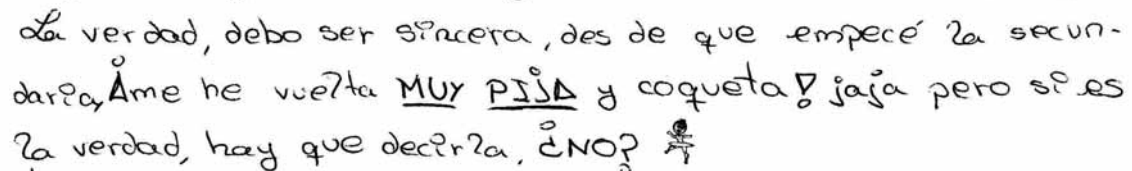 La verdad, debo ser sincera, des de que empecé la secun-
daria, ¡me he vuelta MUY PIJA y coqueta! jaja pero si es
la verdad, hay que decirla, ¿NO?